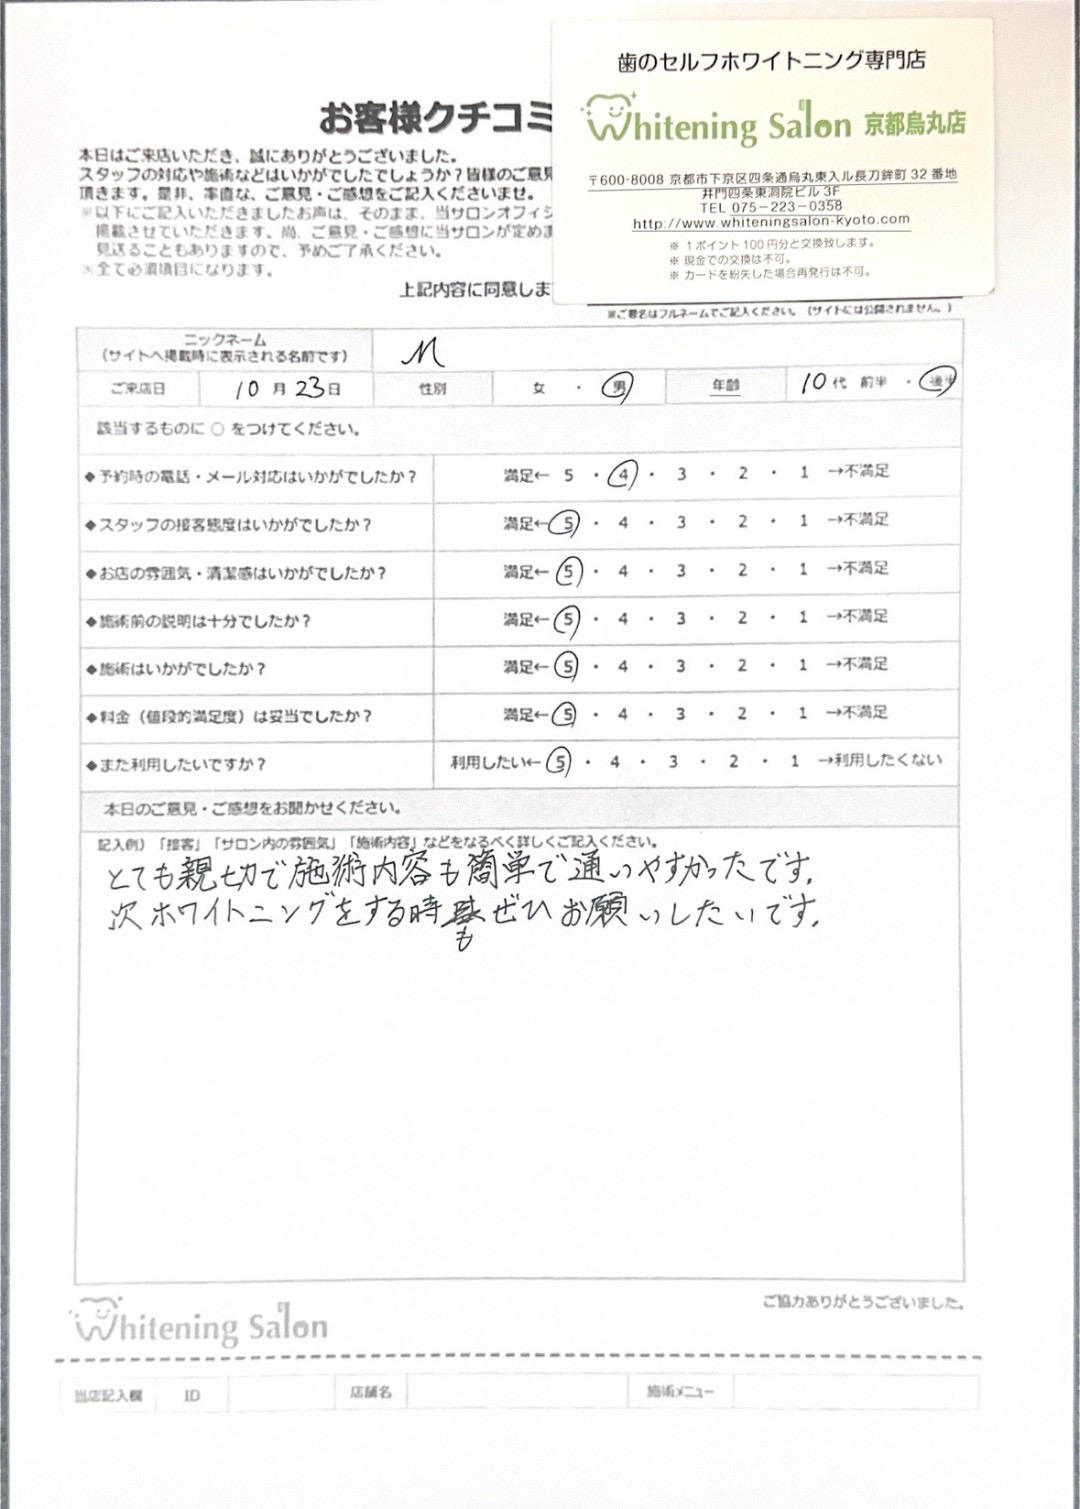 歯のセルフホワイトニング専門店
Whitening Salon 京都烏丸店
〒600-8008 京都市下京区四条通烏丸東入ル長刀鉾町 32 番地
井門四条東洞院ビル 3F
TEL 075-223-0358
http://www.whiteningsalon-kyoto.com
※ 1ポイント100円分と交換致します。
※ 現金での交換は不可。
※ カードを紛失した場合再発行は不可。
お客様クチコミ
本日はご来店いただき、誠にありがとうございました。
スタッフの対応や施術などはいかがでしたでしょうか？皆様のご意見
頂きます。是非、率直な、ご意見・ご感想をご記入くださいませ。
※以下にご記入いただきましたお声は、そのまま、当サロンオフィシ
掲載させていただきます。尚、ご意見・ご感想に当サロンが定めま
見送ることもありますので、予めご了承ください。
※全て必須項目になります。
上記内容に同意しま
※ご署名はフルネームでご記入ください。（サイトには公開されません。）
ニックネーム
（サイトへ掲載時に表示される名前です） M
ご来店日 10月23日 性別 女・男 年齢 10代 前半・後半
該当するものに○をつけてください。
◆予約時の電話・メール対応はいかがでしたか？ 満足← 5 ・ 4 ・ 3 ・ 2 ・ 1 →不満足
◆スタッフの接客態度はいかがでしたか？ 満足← 5 ・ 4 ・ 3 ・ 2 ・ 1 →不満足
◆お店の雰囲気・清潔感はいかがでしたか？ 満足← 5 ・ 4 ・ 3 ・ 2 ・ 1 →不満足
◆施術前の説明は十分でしたか？ 満足← 5 ・ 4 ・ 3 ・ 2 ・ 1 →不満足
◆施術はいかがでしたか？ 満足← 5 ・ 4 ・ 3 ・ 2 ・ 1 →不満足
◆料金（値段的満足度）は妥当でしたか？ 満足← 5 ・ 4 ・ 3 ・ 2 ・ 1 →不満足
◆また利用したいですか？ 利用したい← 5 ・ 4 ・ 3 ・ 2 ・ 1 →利用したくない
本日のご意見・ご感想をお聞かせください。
記入例）「接客」「サロン内の雰囲気」「施術内容」などをなるべく詳しくご記入ください。
とても親切で施術内容も簡単で通いやすかったです。
次ホワイトニングをする時もぜひお願いしたいです。
ご協力ありがとうございました。
Whitening Salon
当店記入欄 ID 店舗名 施術メニュー